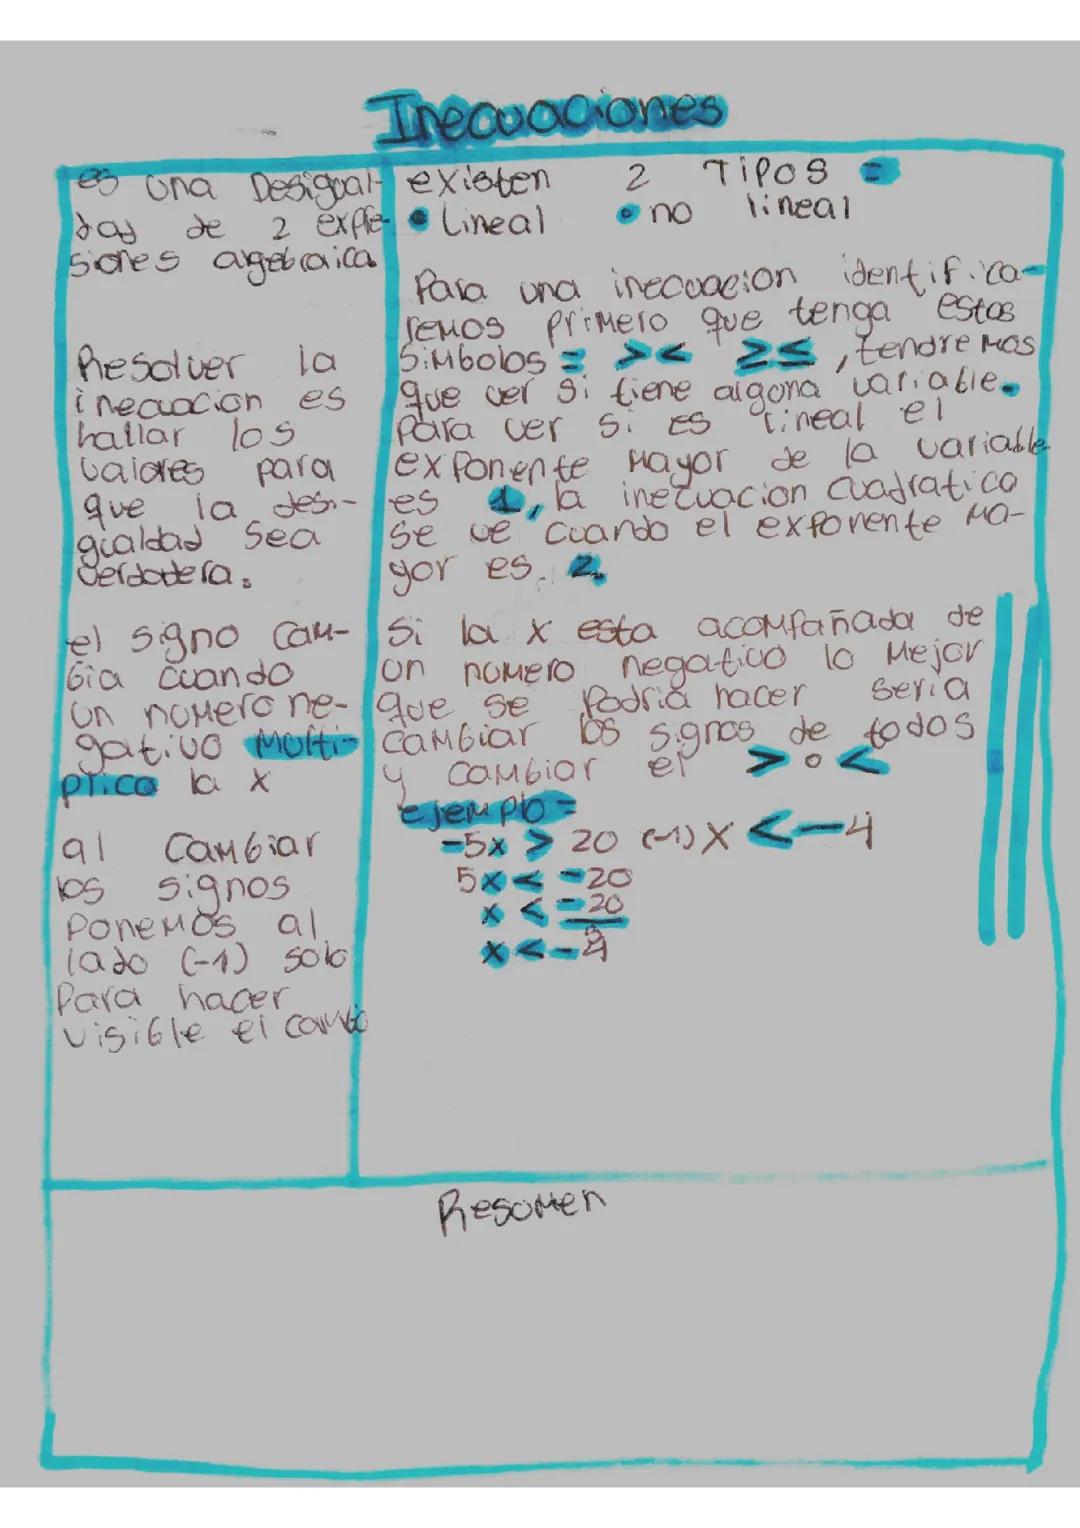 Inecuaciones
es una Desigual-
dad de 2 expre-
siones algebraica
Resolver la
inecuacion es
hallar los
valores para
que la desi-
gualdad sea
verdadera.
el signo cam-
bia cuando
un numero ne-
gativo multi-
plica la x
al cambiar
los signos
Ponemos al
lado (-1) solo
Para hacer
visible el cambio
existen 2 Tipos =
• Lineal • no lineal
Para una inecuacion identifica-
remos primero que tenga estos
simbolos = > < ≥ ≤, tendremos
que ver si tiene alguna variable.
Para ver si es lineal el
exponente mayor de la variable
es 1, la inecuacion cuadratica
se ve cuando el exponente ma-
yor es 2.
Si la x esta acompañada de
un numero negativo lo mejor
que se podria hacer seria
cambiar los signos de todos
y cambiar el > o <
ejemplo =
-5x > 20 (-1) x < -4
5x < -20
x < -20
5
x < -4
Resumen